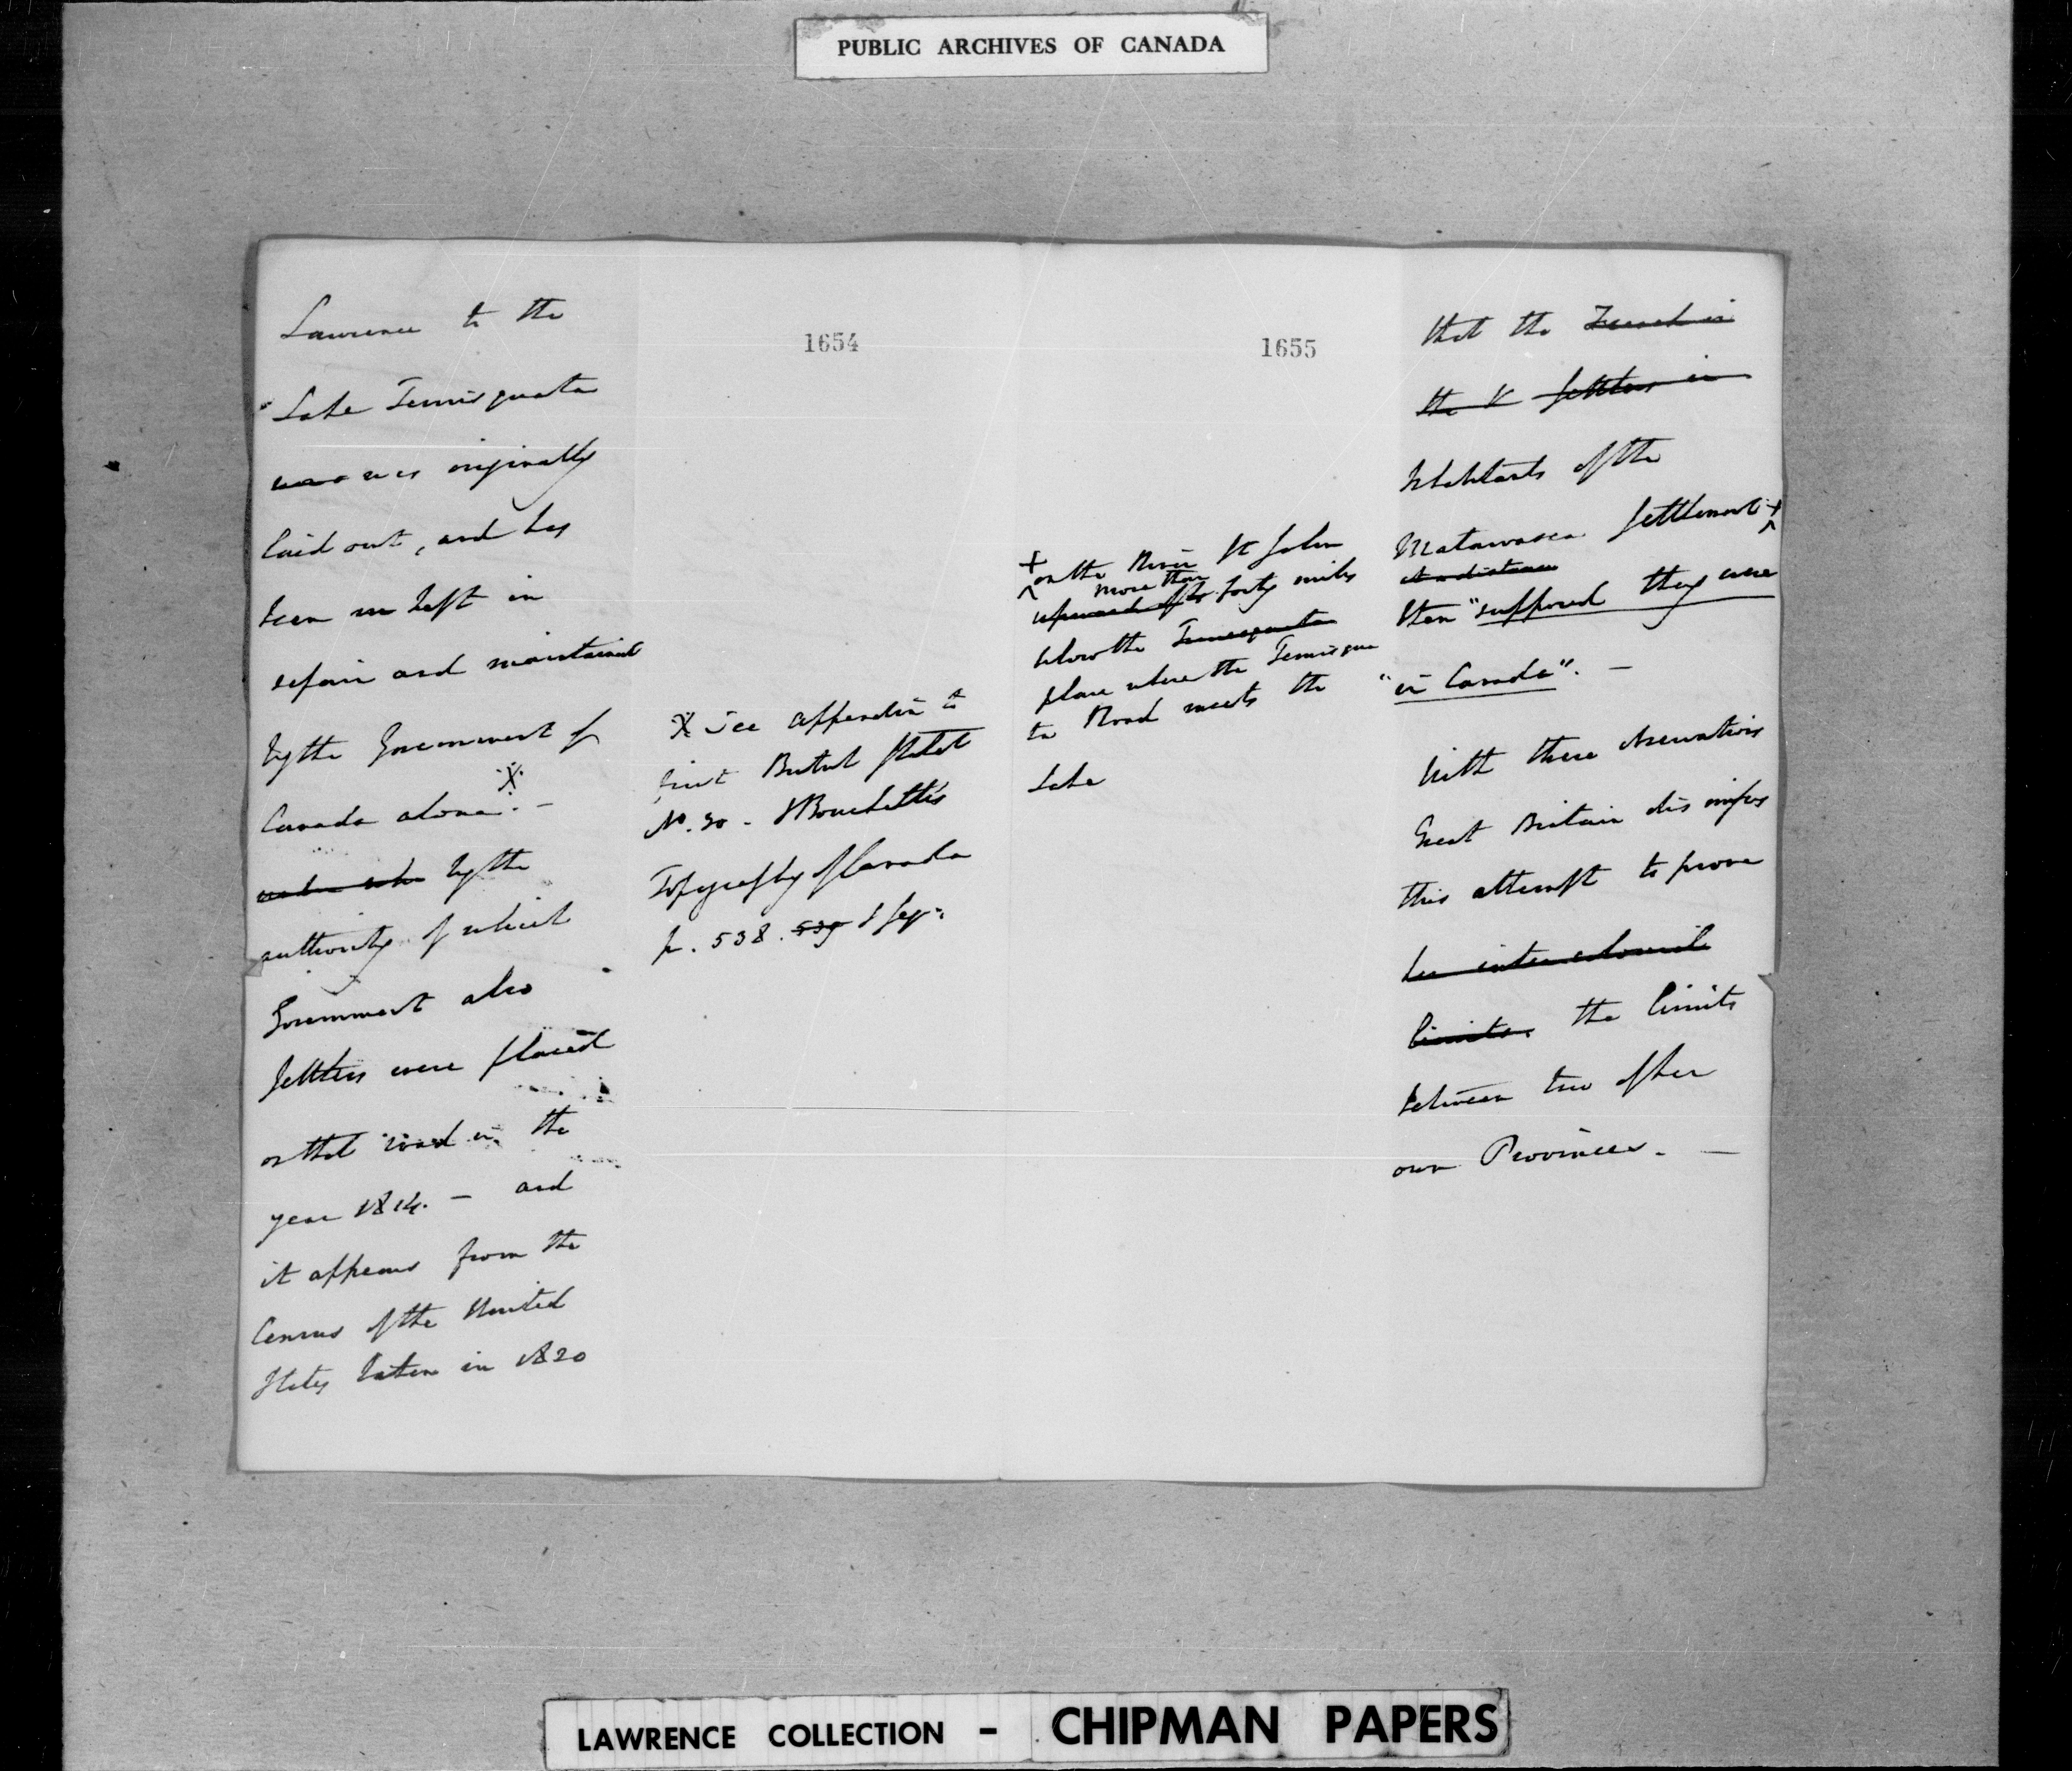 PUBLIC ARCHIVES OF CANADA
1654
Lawrence to the
Lake Temisquata
was originally
laid out, and has
been kept in
repair and maintained
by the Government of
Canada alone. X –
by the
authority of which
Government also
settlers were placed
on that road in the
year 1814. – and
it appears from the
Census of the United
States taken in 1820
X See Appendix to
first British Statet
No. 30 - & Bouchette's
Topography of Canada
p. 538. 539 & seq:
1655
that the French in
the V settlers in
Inhabitants of the
Matawasca Settlement +
at a distance
then "supposed they were
"in Canada". –
+ on the River St John
more than
upward of forty miles
below the Temisquata
place where the Temisqua
ta Road meets the
Lake
With these observations
Great Britain dismisses
this attempt to prove
limits. the limits
between two of her
own Provinces. –
LAWRENCE COLLECTION - CHIPMAN PAPERS